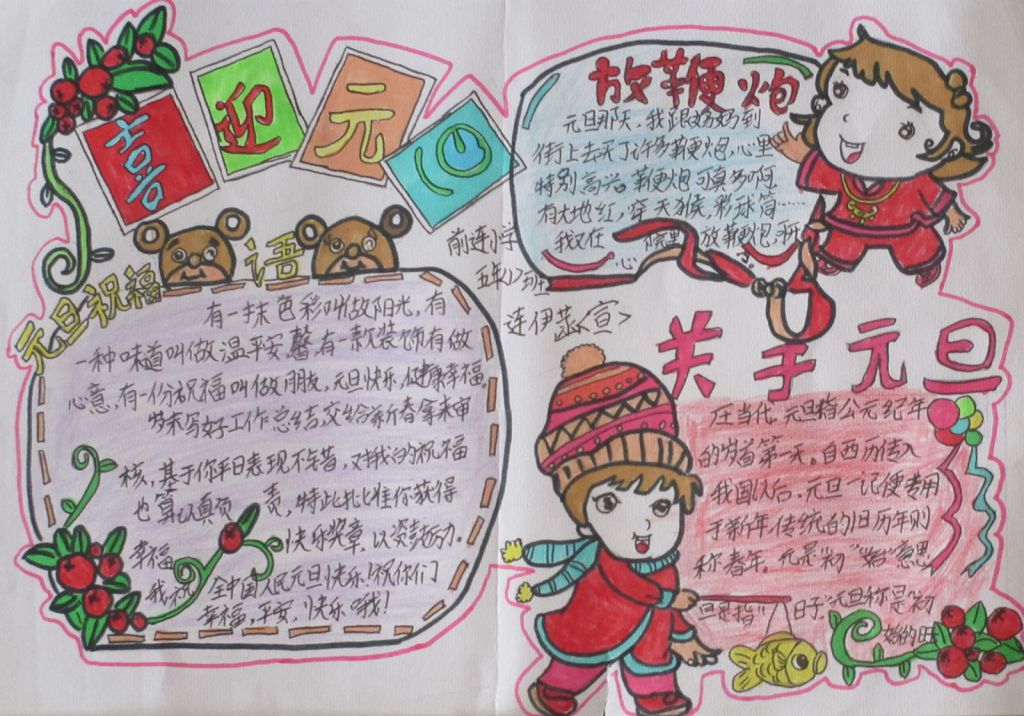 喜迎元旦
元旦祝福语
有一抹色彩叫做阳光,有
一种味道叫做温平安馨,有一款装饰有做
心意,有一份祝福叫做朋友,元旦快乐,健康幸福。
岁末写好工作总结,交给新春拿来审
核,基于你平日表现不错,对我的祝福
也算认真负责,特此批准你获得
幸福 快乐奖章,以资鼓励。
我祝 全中国人民元旦快乐!祝你们
幸福,平安,快乐哦!
前连小学
五年(2)班
连伊蕊<宣>
放鞭炮
元旦那天,我跟妈妈到
街上去买了许多鞭炮,心里
特别高兴。鞭炮可真多啊
有大地红,穿天猴,彩球筒……
我又在 放鞭炮,开
心
关于元旦
在当代,元旦指公元纪年
的岁首第一天。自西历传入
我国以后,元旦一记便专用
于新年,传统的旧历年则
称春年。元是初“始”意思
旦是指“ 日子”元旦称是初
始的日